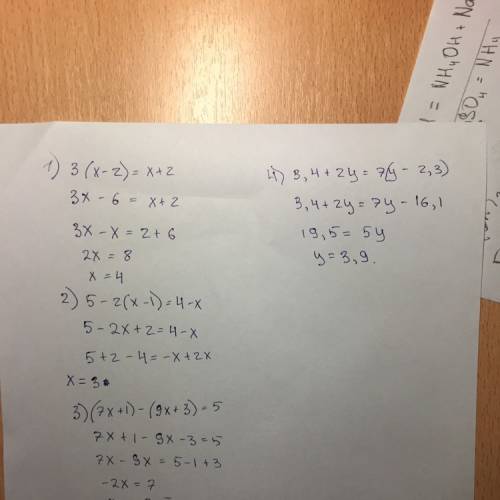 1) 3(x-2)= x+2
3x - 6 = x+2
3x - x = 2+6
2x = 8
x = 4
2) 5-2(x-1)=4-x
5-2x+2=4-x
5+2-4=-x+2x
x=3
3)(7x+1)-(9x+3)=5
7x+1-9x-3=5
7x-9x=5-1+3
-2x=7
4) 3,4+2y=7(y-2,3)
3,4+2y=7y-16,1
19,5=5y
y=3,9.
= NH4OH + Na
SO4 = NH4